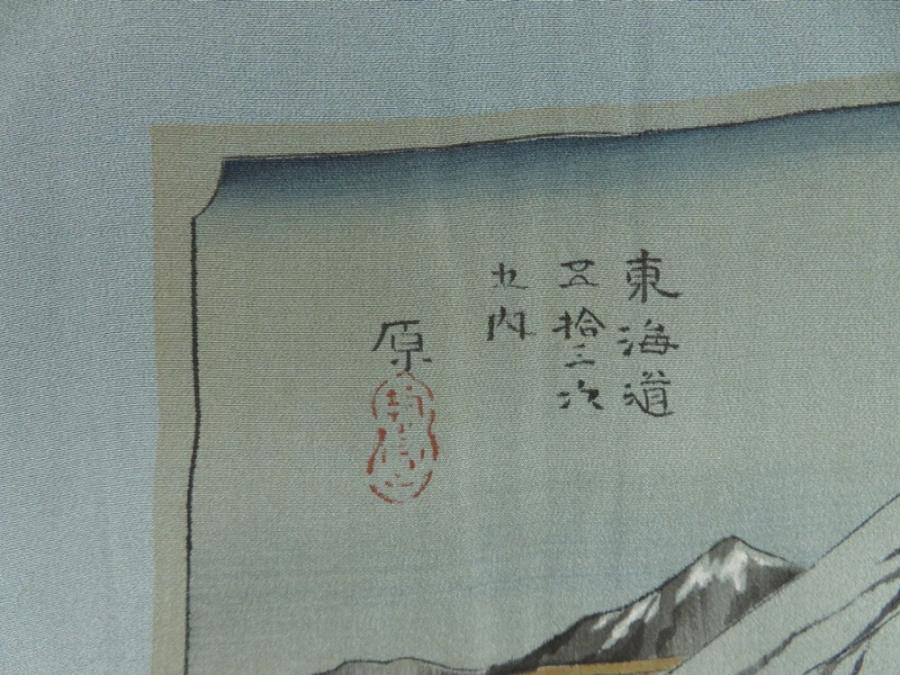 東海道
五拾三次
之内
原